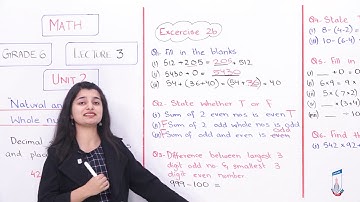 MATH
GRADE 6
LECTURE 3
UNIT-2
Natural an
Whole nu
Decimal
and plac
42
Excercise 2b
Q1. Fill in the blanks
(i) 512 + 205 = 205 + 512
(ii) 5430 + 0 = 5430
(iii) 54 + (36+40) = (54+36) + 40
Q2. State whether T or F
(i) Sum of 2 even nos is even T
F Sum of 2 odd whole nos is odd
F Sum of odd and even is even
odd
Q3. Difference between largest 3
digit odd no. & smallest 3
digit even number
999 - 100 =
Q4. State
(i) 8 - (4-2)
(ii) 10 - (6-4)
Q5. Fill in
(i) __ + 0 =
(ii) 6 × 9 =
(iii) 5 × (7×2)
(iv) __ - 10
Q6. Find
542 × 92 +